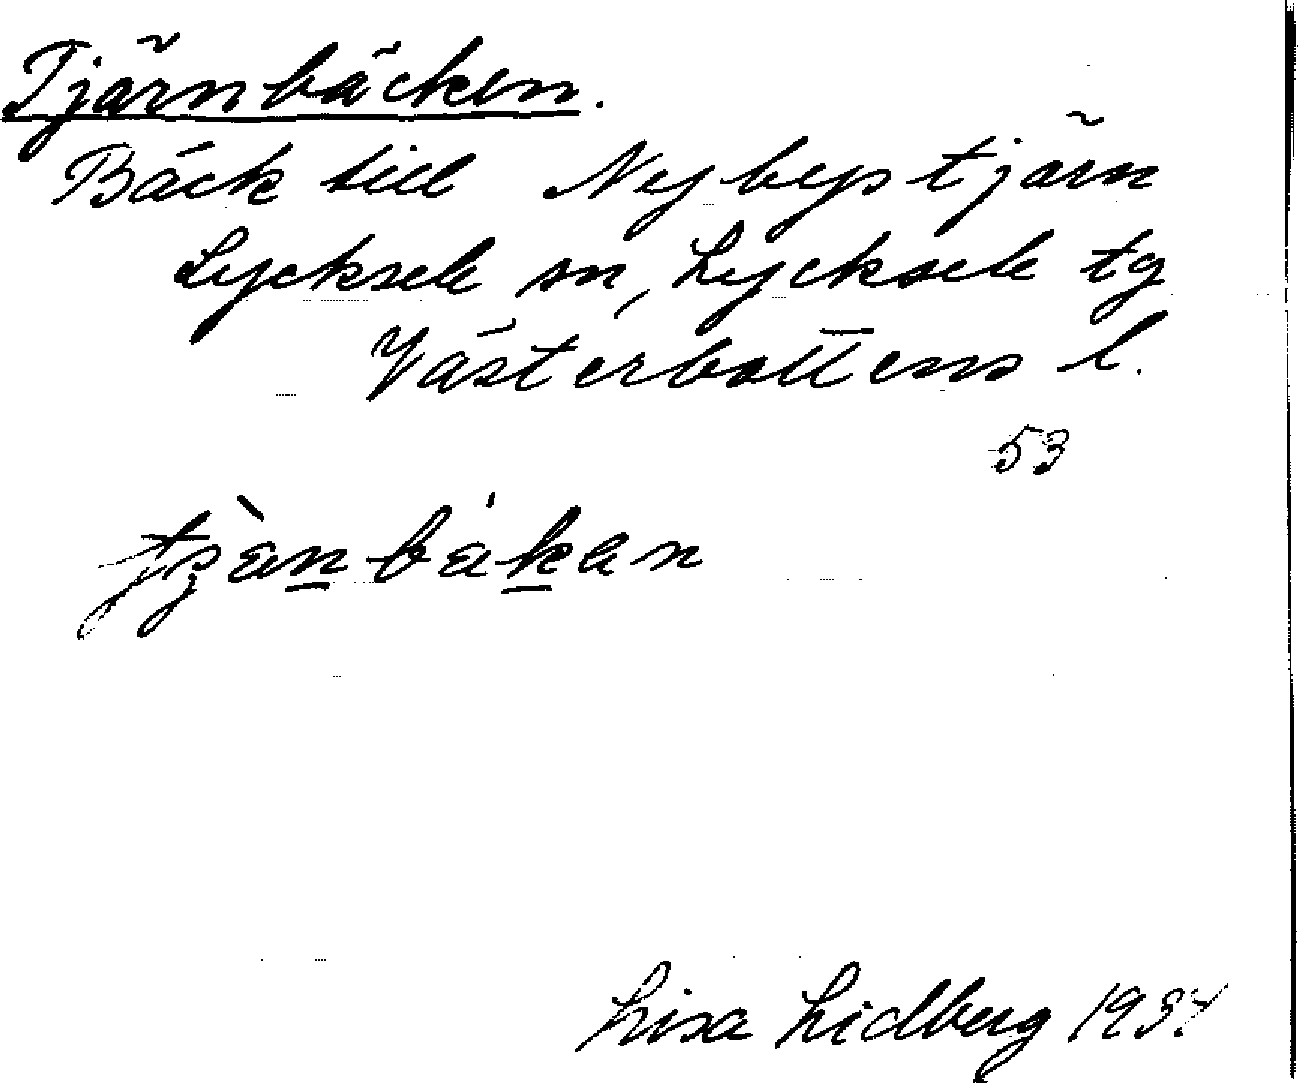 Tjärnbäcken.
Bäck till Nybystjärn
Lycksele sn, Lycksele tg
Västerbottens l.
53
Lisa Lidberg